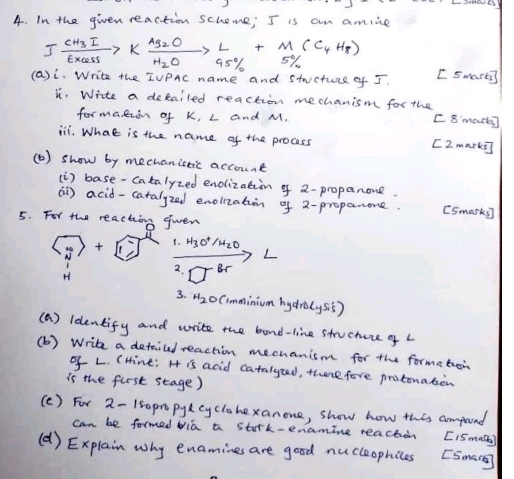 4. In the given reaction scheme; J is an amine
J CH3 I Excess → K Ag2O H2O → L 95% + M (C4 H8) 5%
(a) i. Write the IUPAC name and structure of J. [5 marks]
ii. Write a detailed reaction mechanism for the
formation of K, L and M. [8 marks]
iii. What is the name of the process [2 marks]
(b) Show by mechanistic account
(i) base-catalyzed enolization of 2-propanone.
(ii) acid-catalyzed enolization of 2-propanone. [5marks]
5. For the reaction given
N H + O 1. H3O+/H2O → L
2. Br
3. H2O (imminium hydrolysis)
(a) Identify and write the bond-line structure of L
(b) Write a detailed reaction mechanism for the formation
of L. (Hint: It is acid catalyzed, therefore protonation
is the first stage)
(c) For 2-Isopropyl cyclohexanone, show how this compound
can be formed via a stork-enamine reaction [15 marks]
(d) Explain why enamines are good nucleophiles [5marks]